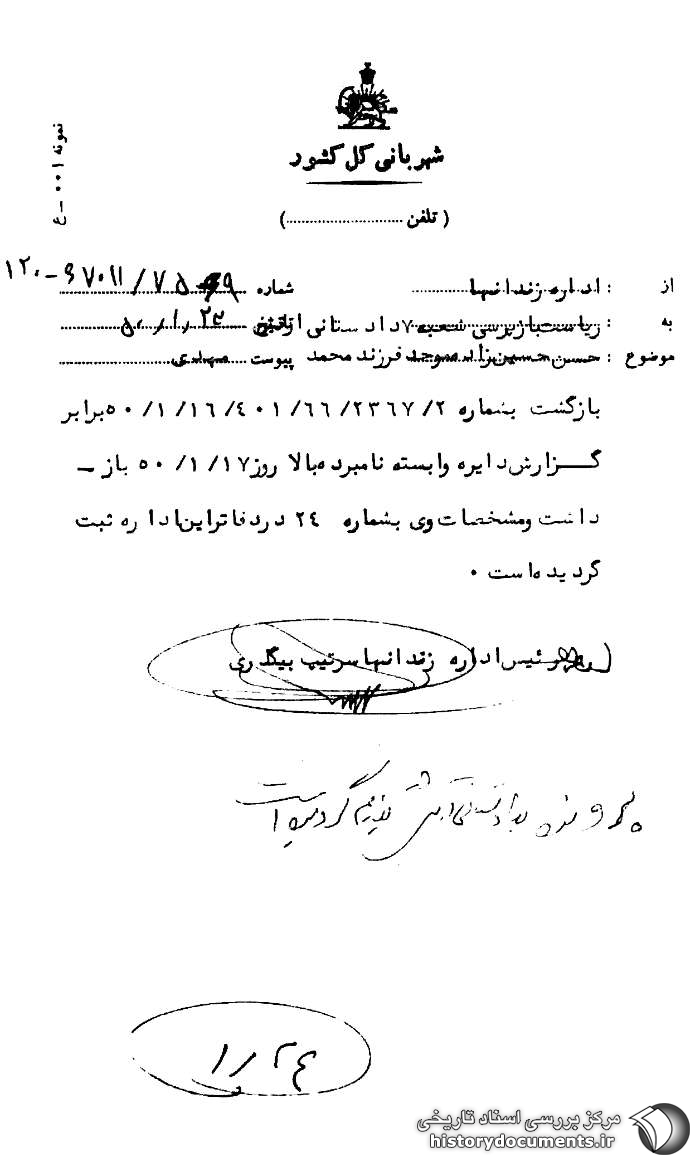 نمونه ۰۰۱ – ع
شهربانی کل کشور
( تلفن ............................)
از : اداره زندانها
شماره
به : ریاست بازپرسی شعبه ۷ دادستانی ارتش
تاریخ ۵۰/۱/۲۳
موضوع : حسن حسین زاده موحد فرزند محمد مهدی
پیوست
بازگشت بشماره ۲۳۶۷/۲/ ۶۶/ ۴۰۱/ ۵۰/۱/۱۶ برابر
گزارش دایره وابسته نامبرده بالا روز ۵۰/۱/۱۷ باز –
داشت ومشخصات وی بشماره ۲۴ دردفاتراین اداره ثبت
گردیده است ۰
رئیس اداره زندانها سرتیپ بیگلری
پرونده بدادستانی ارتش تقدیم گردیده است
۱/۲۴
مرکز بررسی اسناد تاریخی
historydocuments.ir